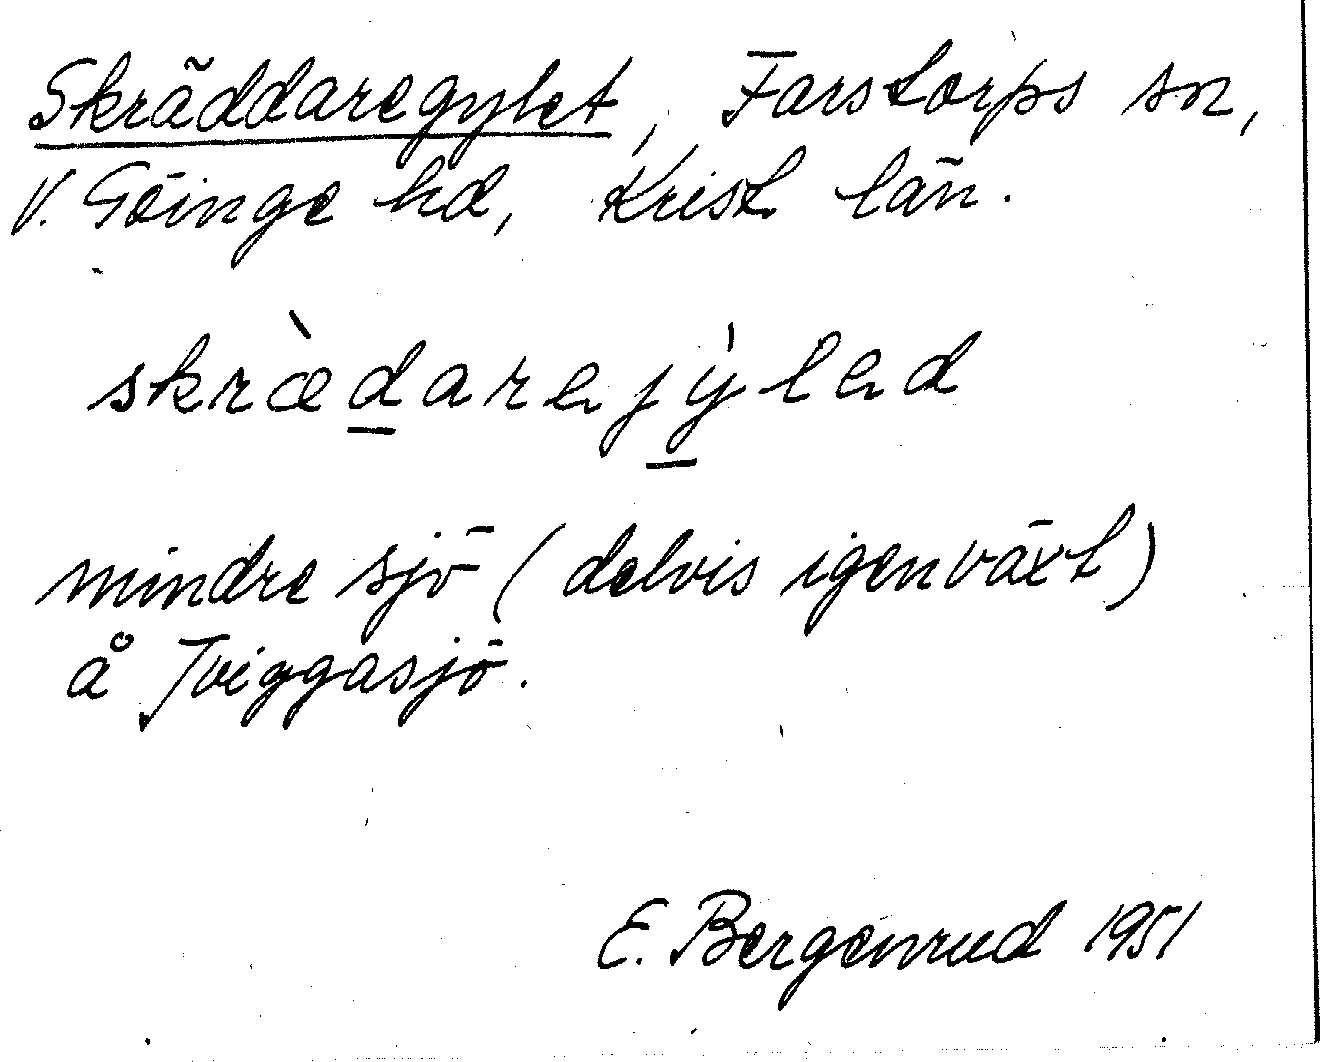 Skräddaregylet, Farstorps sn,
V. Göinge hd, Krist. län.
skræ̀darejy̍led
mindre sjö (delvis igenväxt)
å Tviggasjö.
E. Bergenrud 1951